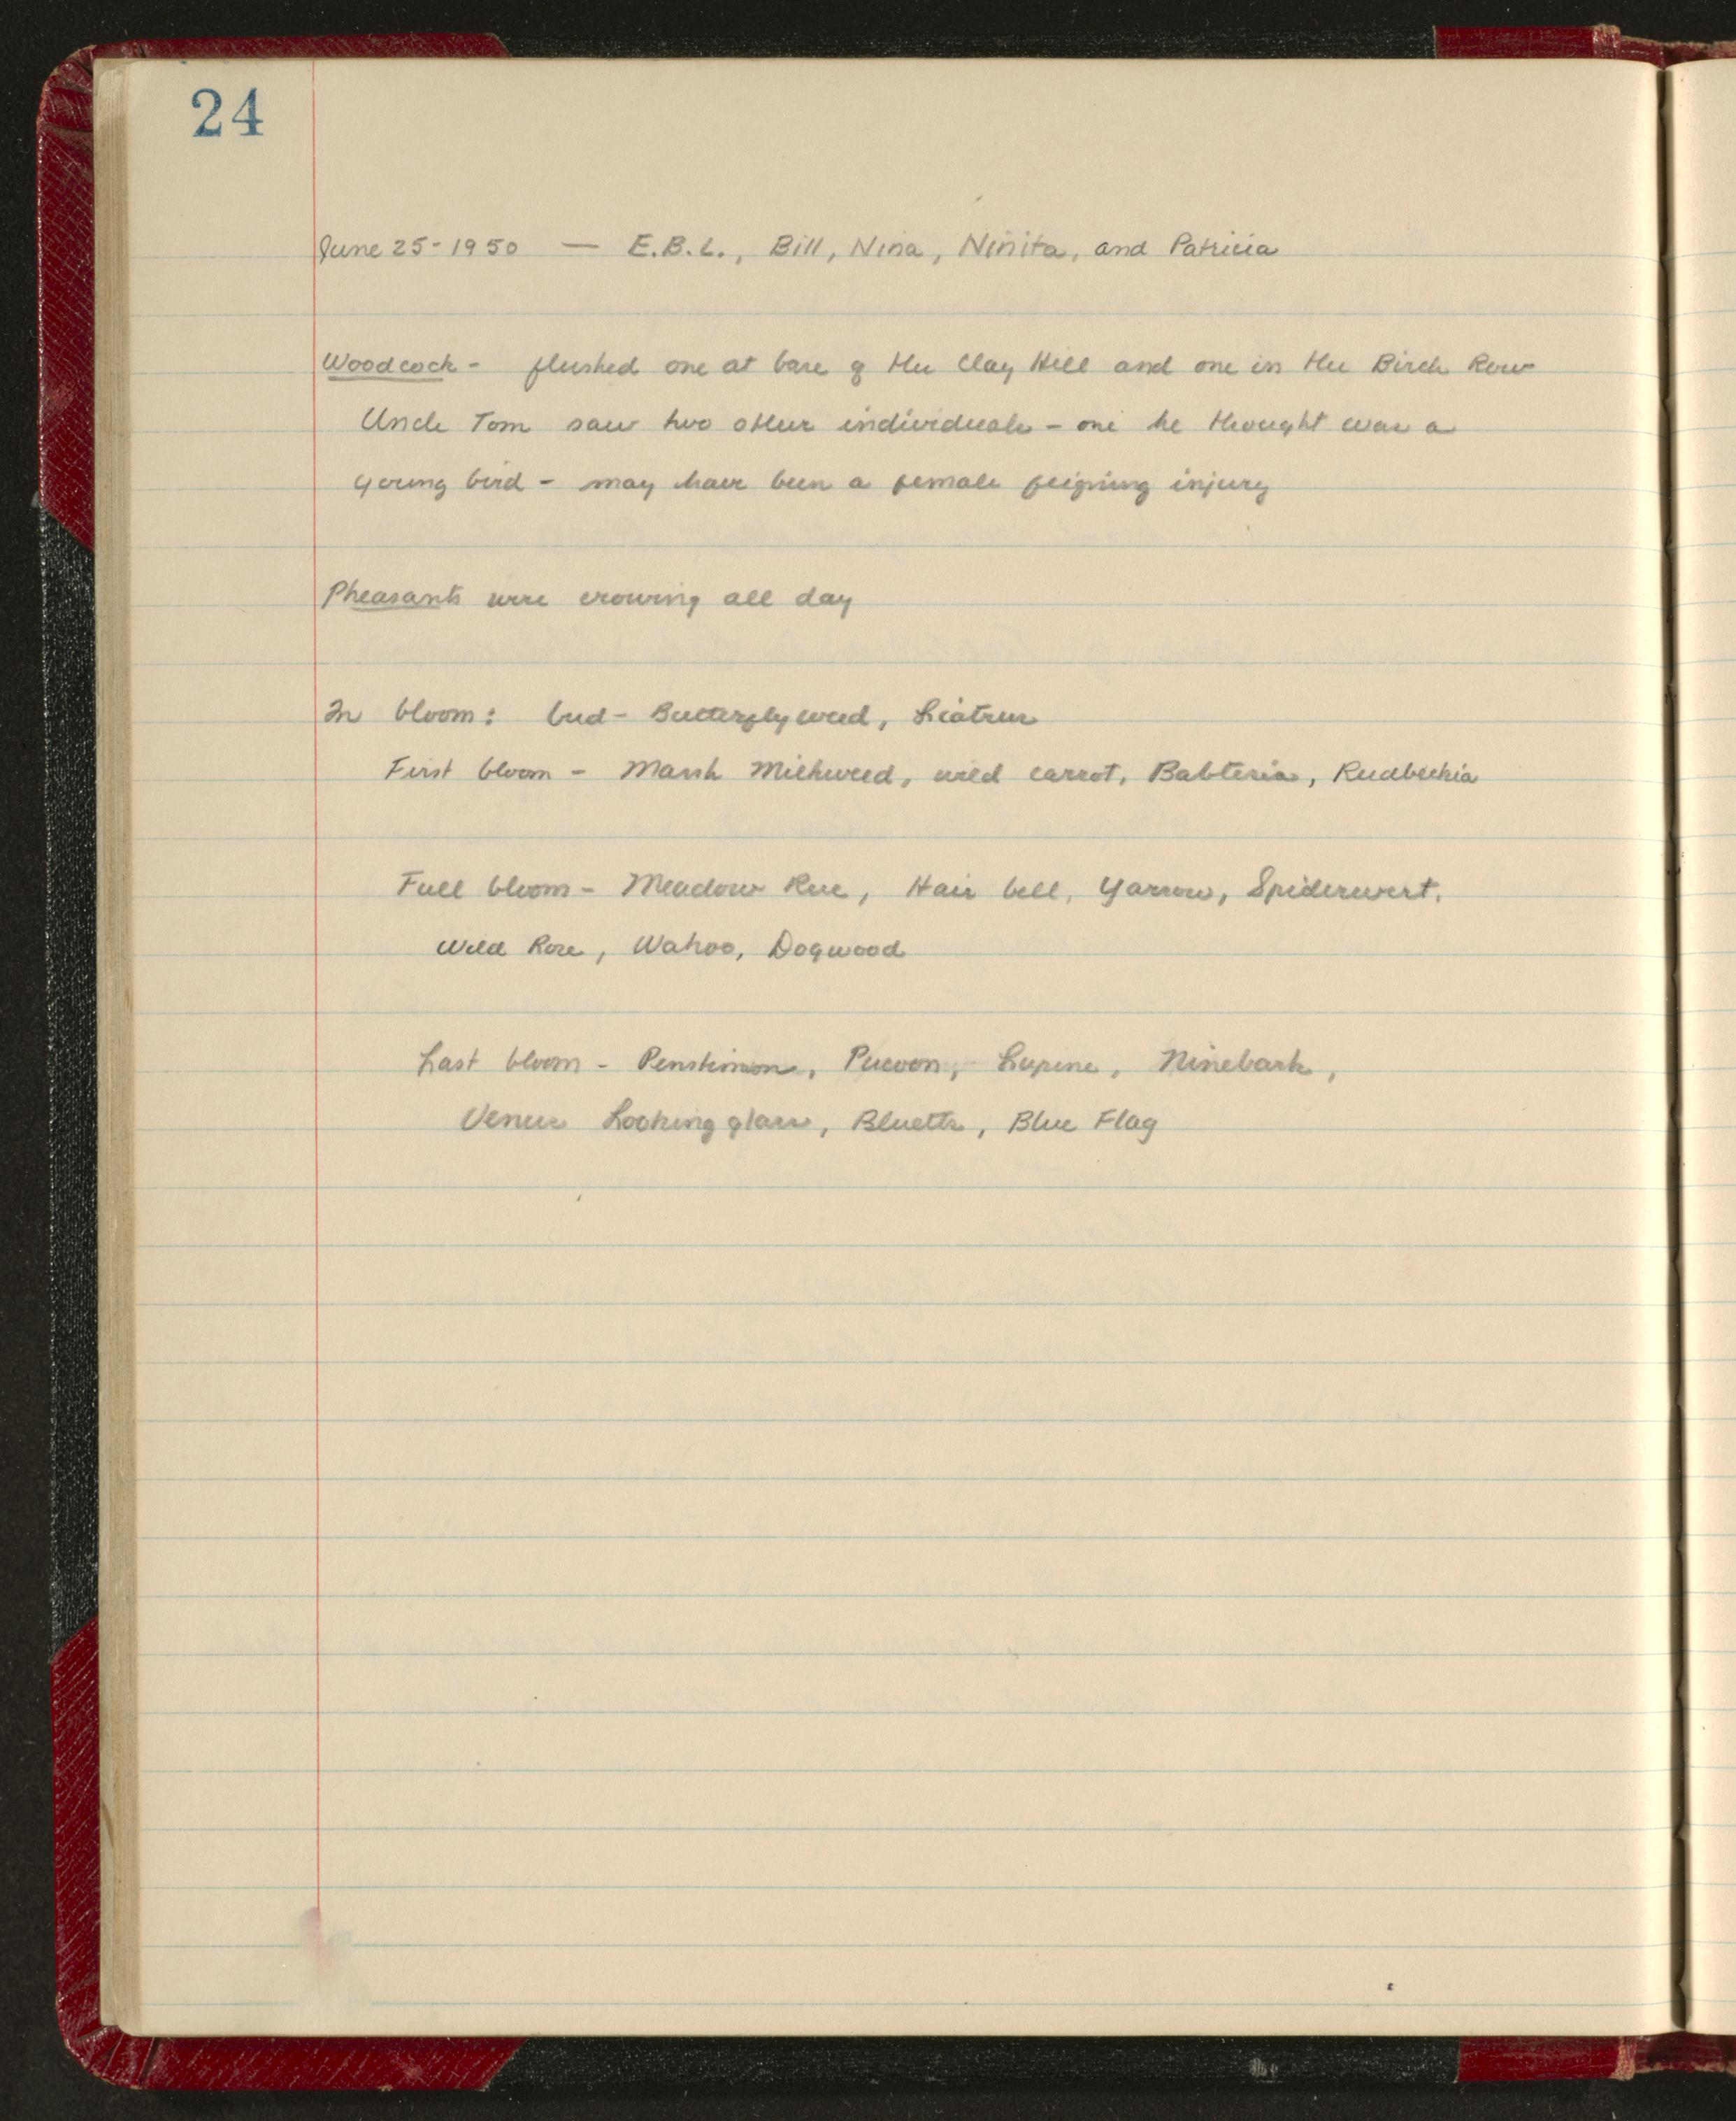 24
June 25-1950 — E.B.L., Bill, Nina, Ninita, and Patricia
Woodcock - flushed one at base of the Clay Hill and one in the Birch Row
Uncle Tom saw two other individuals - one he thought was a
young bird - may have been a female feigning injury
Pheasants were crowing all day
In bloom: bud - Butterfly weed, Liatrus
First bloom - Marsh Milkweed, wild carrot, Babtesia, Rudbeckia
Full bloom - Meadow Rue, Hair bell, Yarrow, Spiderwort,
Wild Rose, Wahoo, Dogwood
Last bloom - Penstimon, Pucoon, Lupine, Ninebark,
Venus Looking glass, Bluetts, Blue Flag